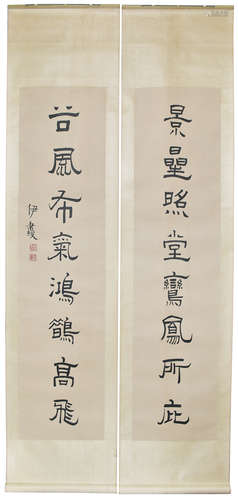 景星照堂鸞鳳所庇
谷風布氣鴻鵠高飛
伊